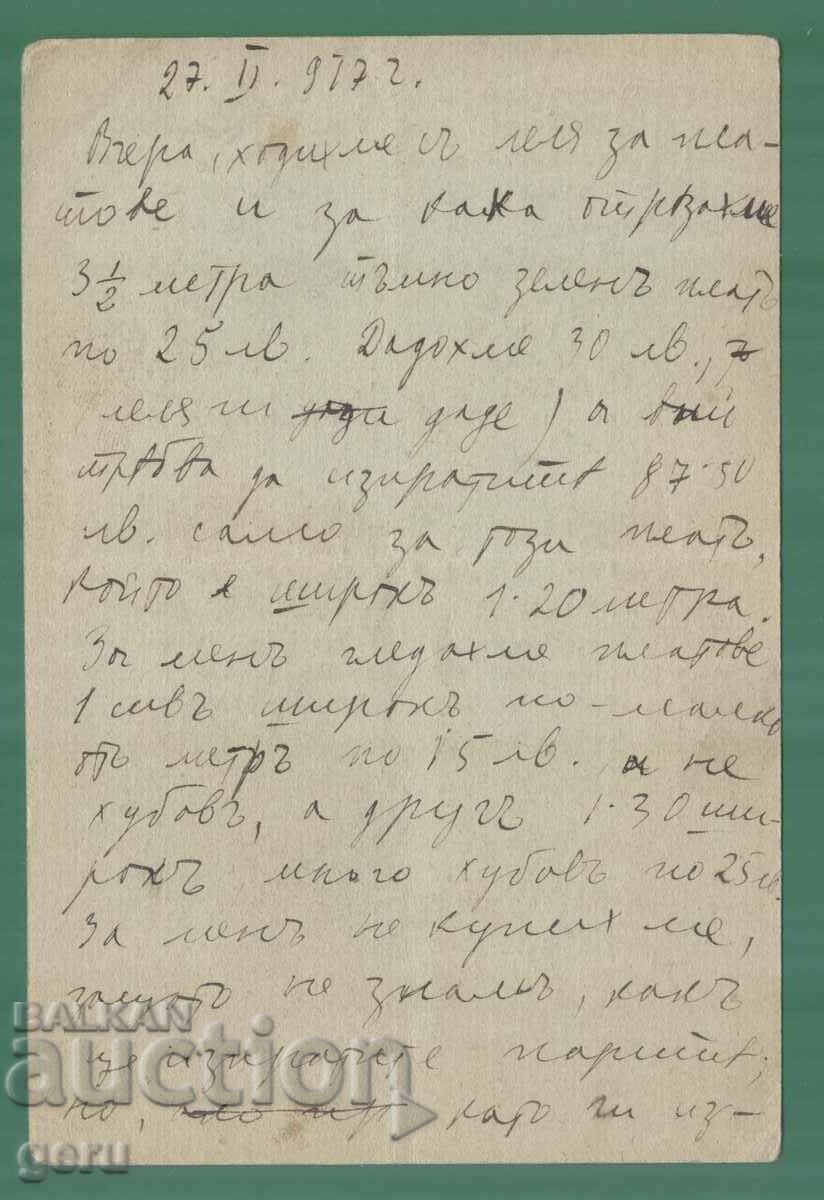 27. II. 917 г.
Вчера, ходихме съ леля за пла-
тове и за кака отрѣзахме
3 1/2 метра тъмно зеленъ платъ
по 25 лв. Дадохме 30 лв.,
леля ги даде) а вий
трѣбва да изпратитѣ 87·50
лв. само за този платъ,
който е широкъ 1·20 метра.
За менъ гледахме платове
1 сивъ широкъ по-малко
отъ метръ по 15 лв. и не
хубавъ, а другъ 1·30 ши-
рокъ много хубавъ по 25 лв.
За менъ не купихме,
защото не знамъ, какъ
ще изпратите паритѣ;
но, като ги из-
BALKAN
auction
geru